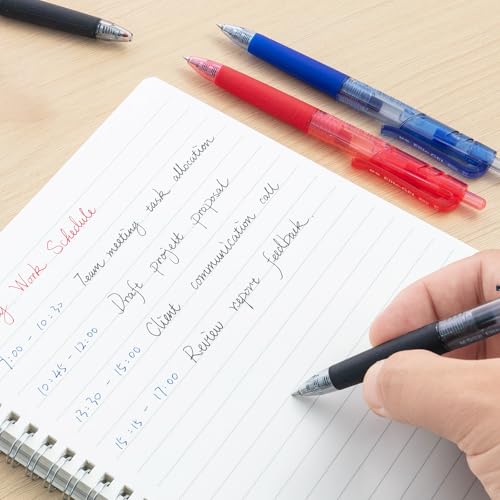 y Work Schedule
9:00 - 10:30 Team meeting task allocation
10:45 - 12:00 Draft projelt proposal
13:30 - 15:00 Client communication call
15:15 - 17:00 Review report feedback.